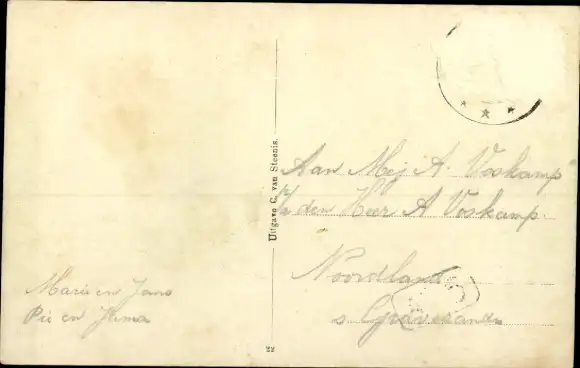 Uitgave C. van Steenis.
Aan Mej A. Voskamp
p/a den Heer A Voskamp
Noordland
s Gravesande
Marie en Jans
Pie en
22